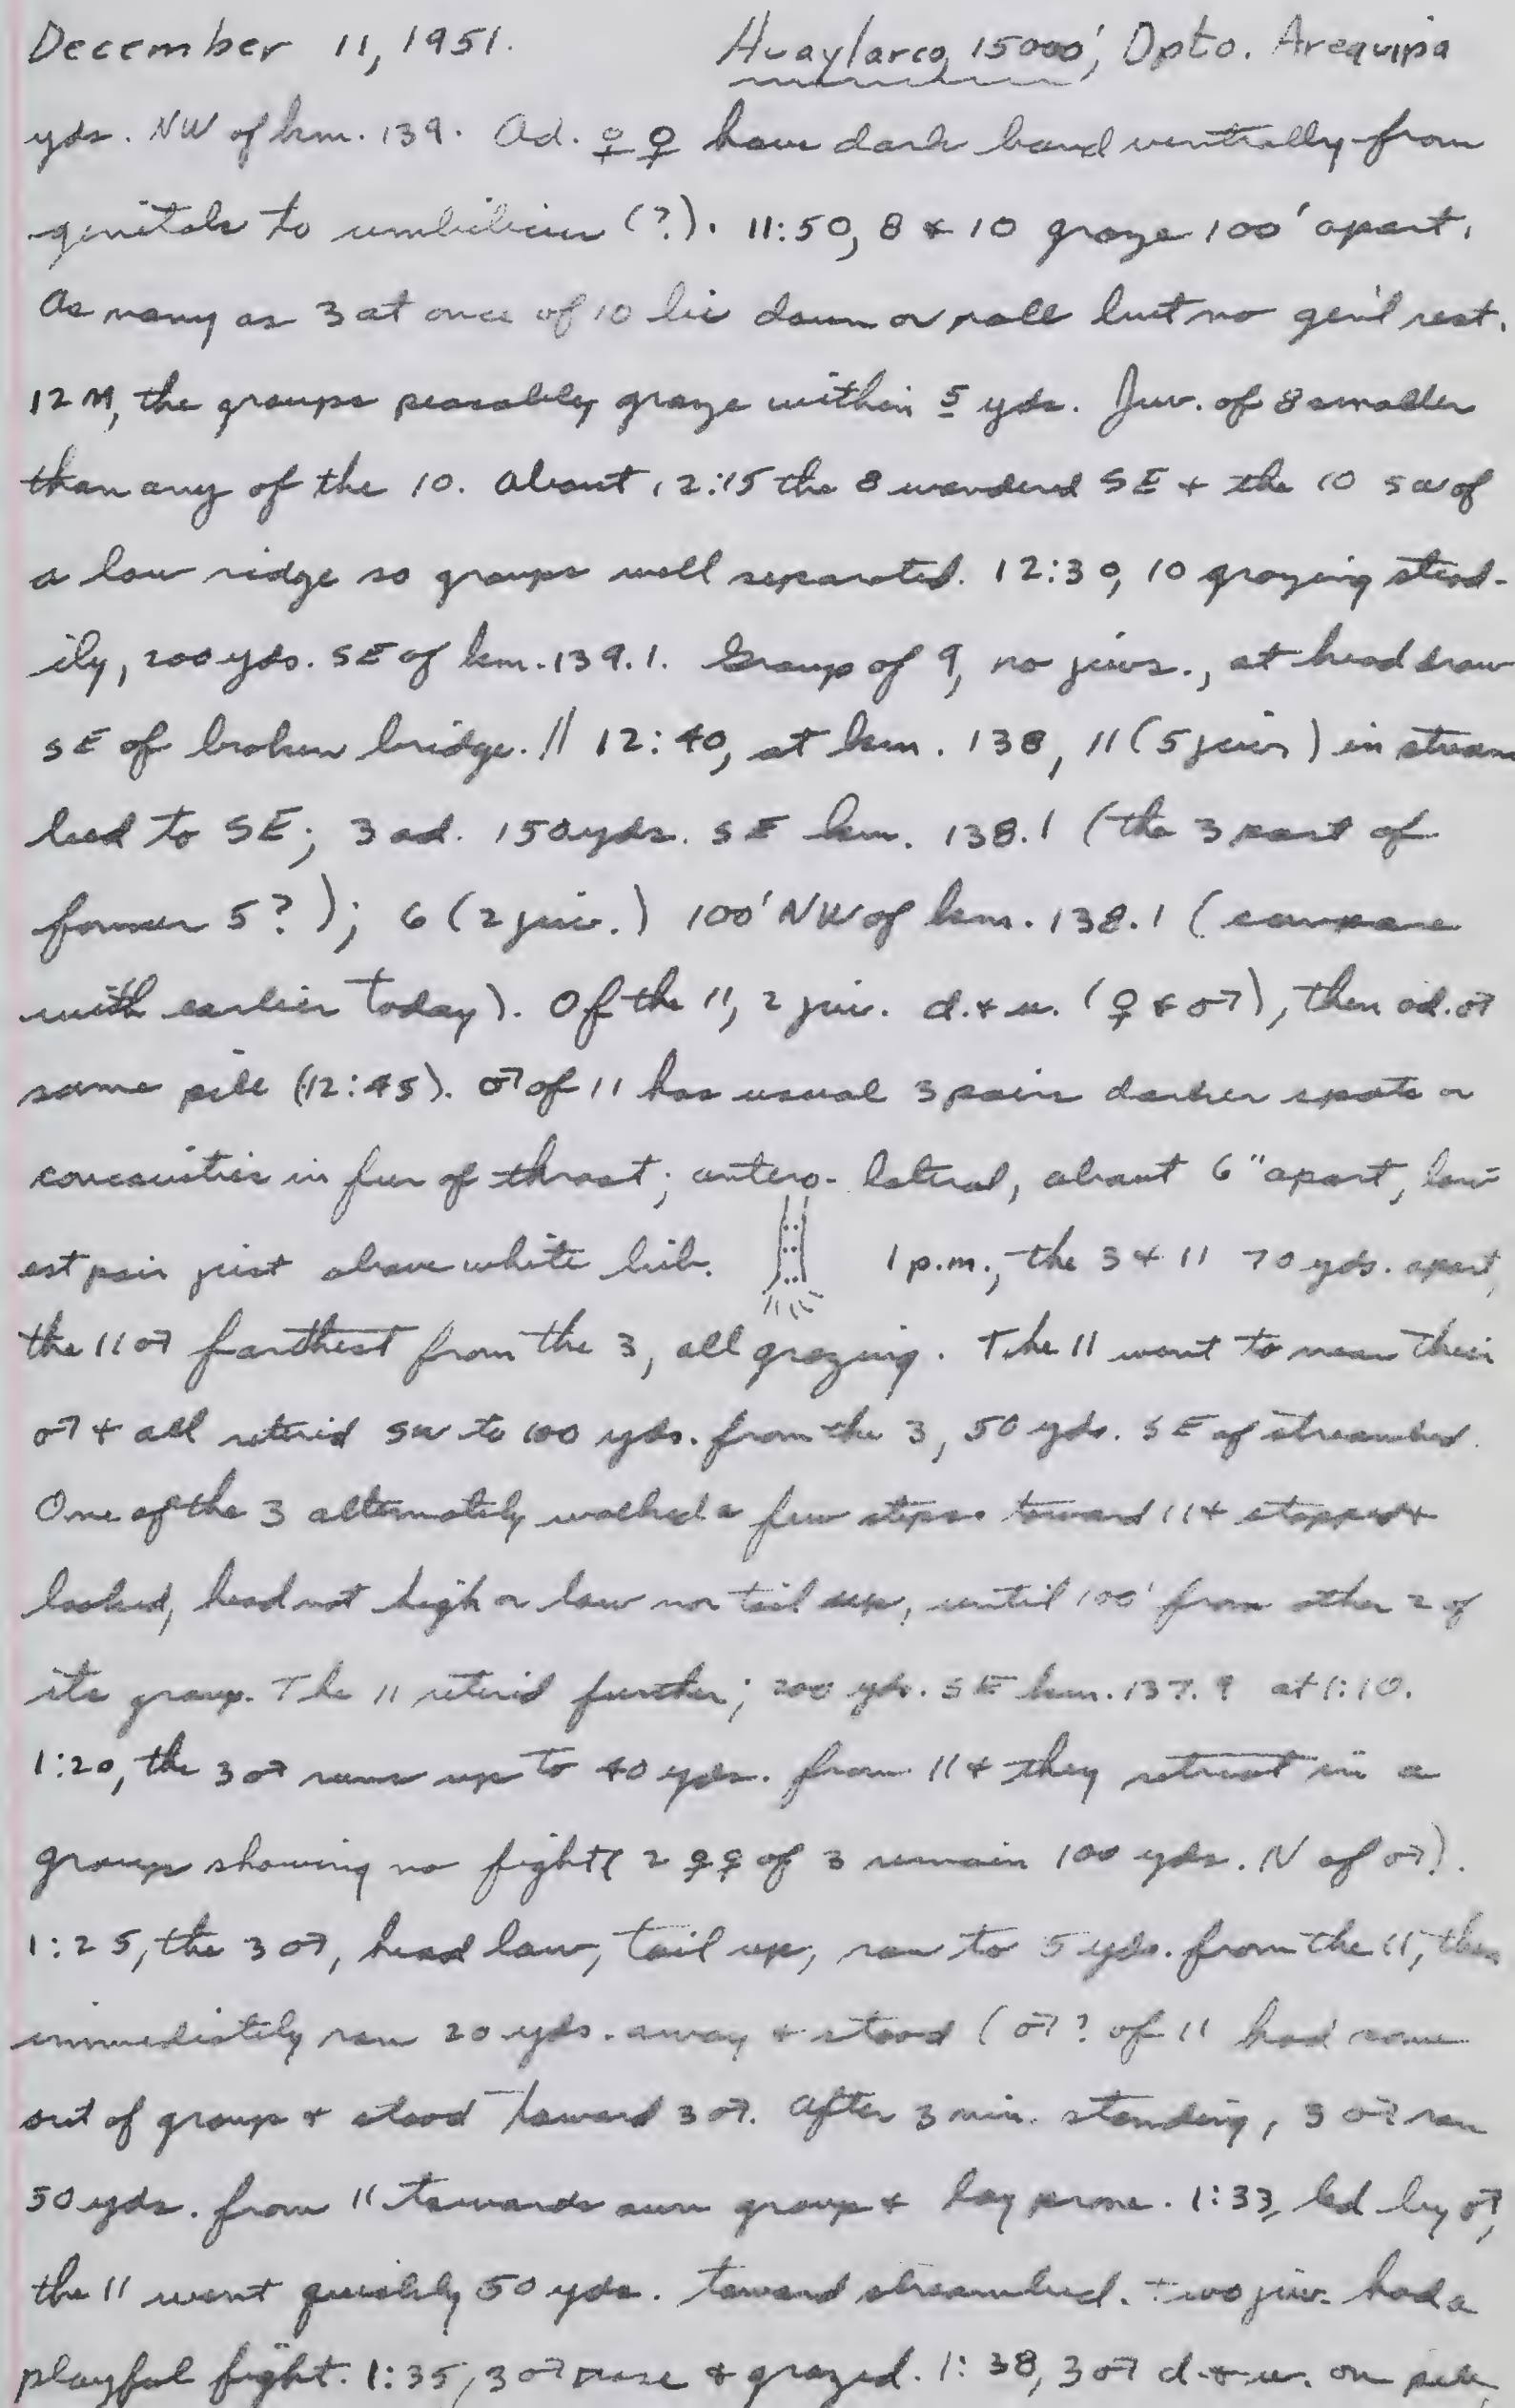 December 11, 1951. Huaylarco, 15000', Dpto. Arequipa
yds. NW of km. 139. Ad. ♀♀ have dark band ventrally from
genitals to umbilicus (?). 11:50, 8 & 10 graze 100' apart.
As many as 3 at once of 10 lie down or roll but no gen'l rest.
12 M, the groups peaceably graze within 5 yds. Juv. of 8 smaller
than any of the 10. About 12:15 the 8 wandered SE & the 10 SW of
a low ridge so groups well separated. 12:30, 10 grazing stead-
ily, 200 yds. SE of km. 139.1. Group of 9, no juvs., at head draw
SE of broken bridge. // 12:40, at km. 138, 11 (5 juvs) in stream
bed to SE; 3 ad. 150 yds. SE km. 138.1 (the 3 part of
former 5?); 6 (2 juv.) 100' NW of km. 138.1 (compare
with earlier today). Of the 11, 2 juv. d. & u. (♀ & ♂), then ad. ♂
same pile (12:45). ♂ of 11 has usual 3 pairs darker spots or
concavities in fur of throat; antero-lateral, about 6" apart, low-
est pair just above white bib. 1 p.m., the 3 & 11 70 yds. apart,
the 11 ♂ farthest from the 3, all grazing. The 11 went to near their
♂ & all retired SW to 100 yds. from the 3, 50 yds. SE of streambed.
One of the 3 alternately walked a few steps toward 11 & stopped &
looked, head not high or low nor tail up, until 100' from other 2 of
its group. The 11 retired further; 200 yds. SE km. 137.9 at 1:10.
1:20, the 3 ♂ runs up to 40 yds. from 11 & they retreat in a
group showing no fight (2 ♀♀ of 3 remain 100 yds. N of ♂).
1:25, the 3 ♂, head low, tail up, ran to 5 yds. from the 11, then
immediately ran 20 yds. away & stood (♂? of 11 had come
out of group & stood toward 3 ♂. After 3 min. standing, 3 ♂ ran
50 yds. from 11 towards own group & lay prone. 1:33, led by ♂,
the 11 went quickly 50 yds. toward streambed. Two juv. had a
playful fight. 1:35, 3 ♂ rose & grazed. 1:38, 3 ♂ d. & u. on pile